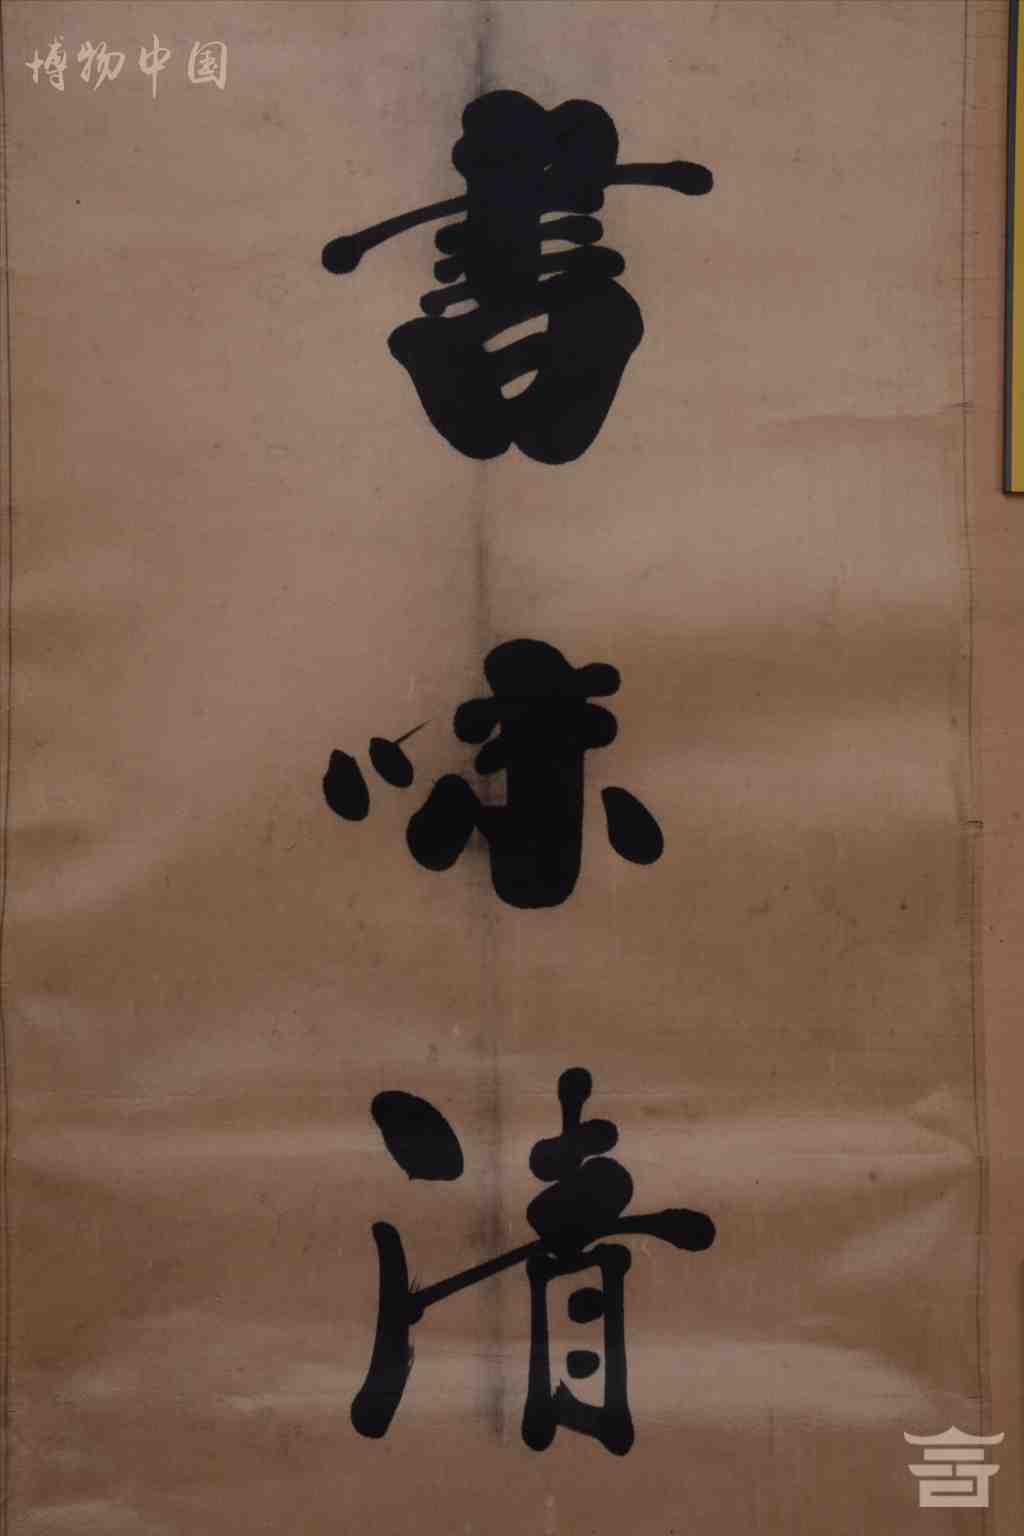 博物中国
書味清